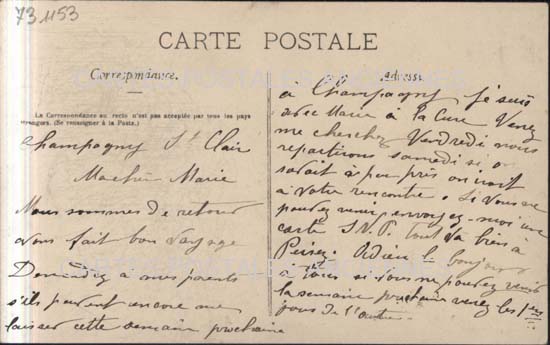 73 1153
CARTE POSTALE
Correspondance.
Adresse
La Correspondance au recto n'est pas acceptée par tous les pays
étrangers. (Se renseigner à la Poste.)
Champagny St Clair
Ma chère Marie
Nous sommes de retour
nous fait bon voyage
Demandez a mes parents
s'ils peuvent encore me
laisser cette semaine prochaine
a Champagny je suis
avec Marie à la Cure Venez
me chercher Vendredi nous
repartirons samedi si on
savait à peu près on irait
à votre rencontre. Si vous ne
pouvez venir envoyez-moi une
carte S.V.P. tout va bien à
Peisey. Adieu - bonjour
à tous si vous ne pouvez venir
la semaine prochaine venez les 1ers
jours de l'autre